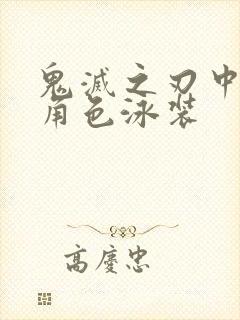 鬼滅之刃中
角色泳装
高慶忠